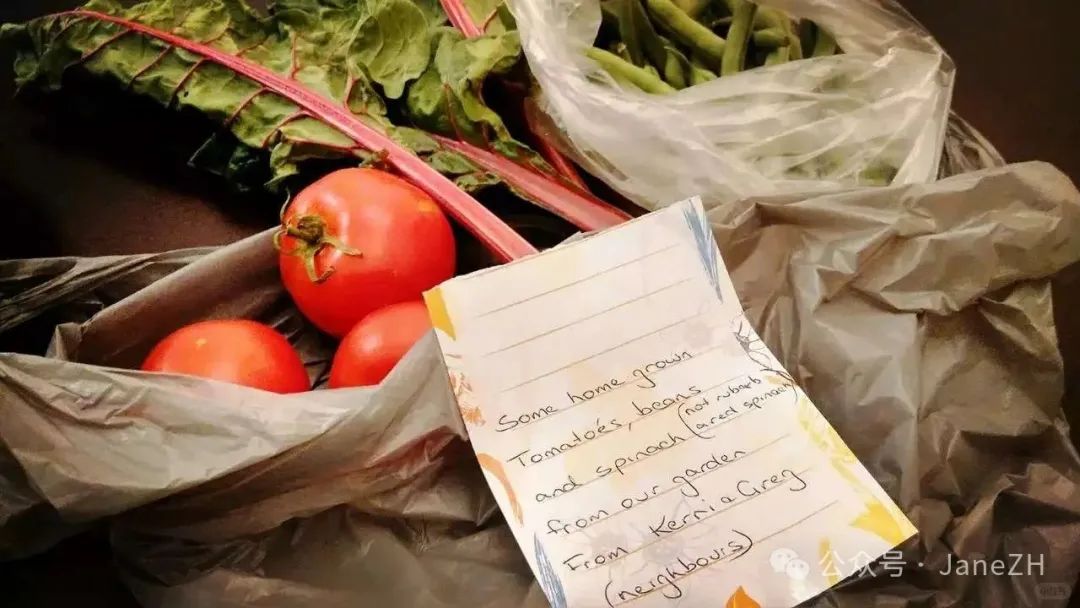 Some home grown
Tomatoes, beans
and spinach (not rubarb
a red spinach)
from our garden
From Kerri & Greg
(neighbours)
公众号 · JaneZH
小红书